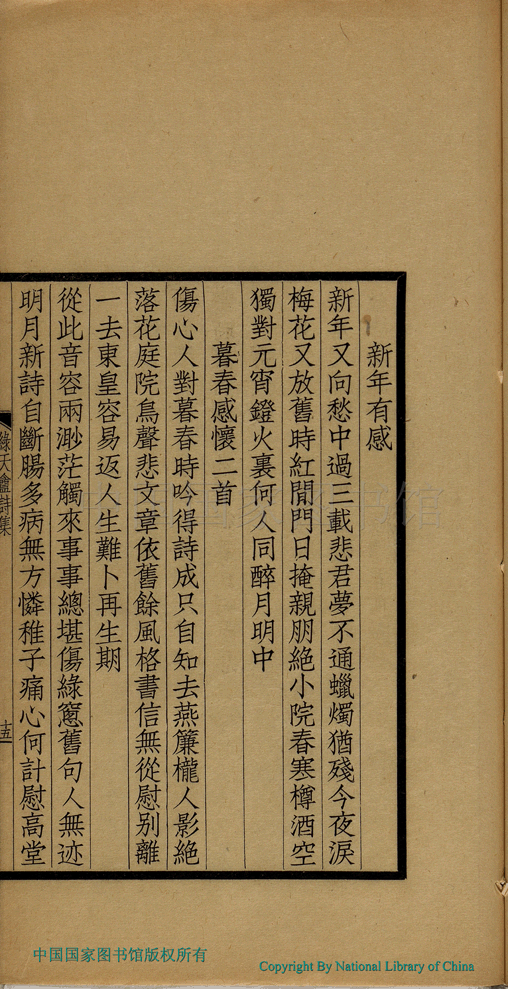 新年有感
新年又向愁中過三載悲君夢不通蠟燭猶殘今夜淚
梅花又放舊時紅閒門日掩親朋絕小院春寒樽酒空
獨對元宵鐙火裏何人同醉月明中
暮春感懷二首
傷心人對暮春時吟得詩成只自知去燕簾櫳人影絕
落花庭院鳥聲悲文章依舊餘風格書信無從慰別離
一去東皇容易返人生難卜再生期
從此音容兩渺茫觸來事事總堪傷綠窻舊句人無迹
明月新詩自斷腸多病無方憐稚子痛心何計慰高堂
綠天龕詩集
十五
中国国家图书馆版权所有
Copyright By National Library of China